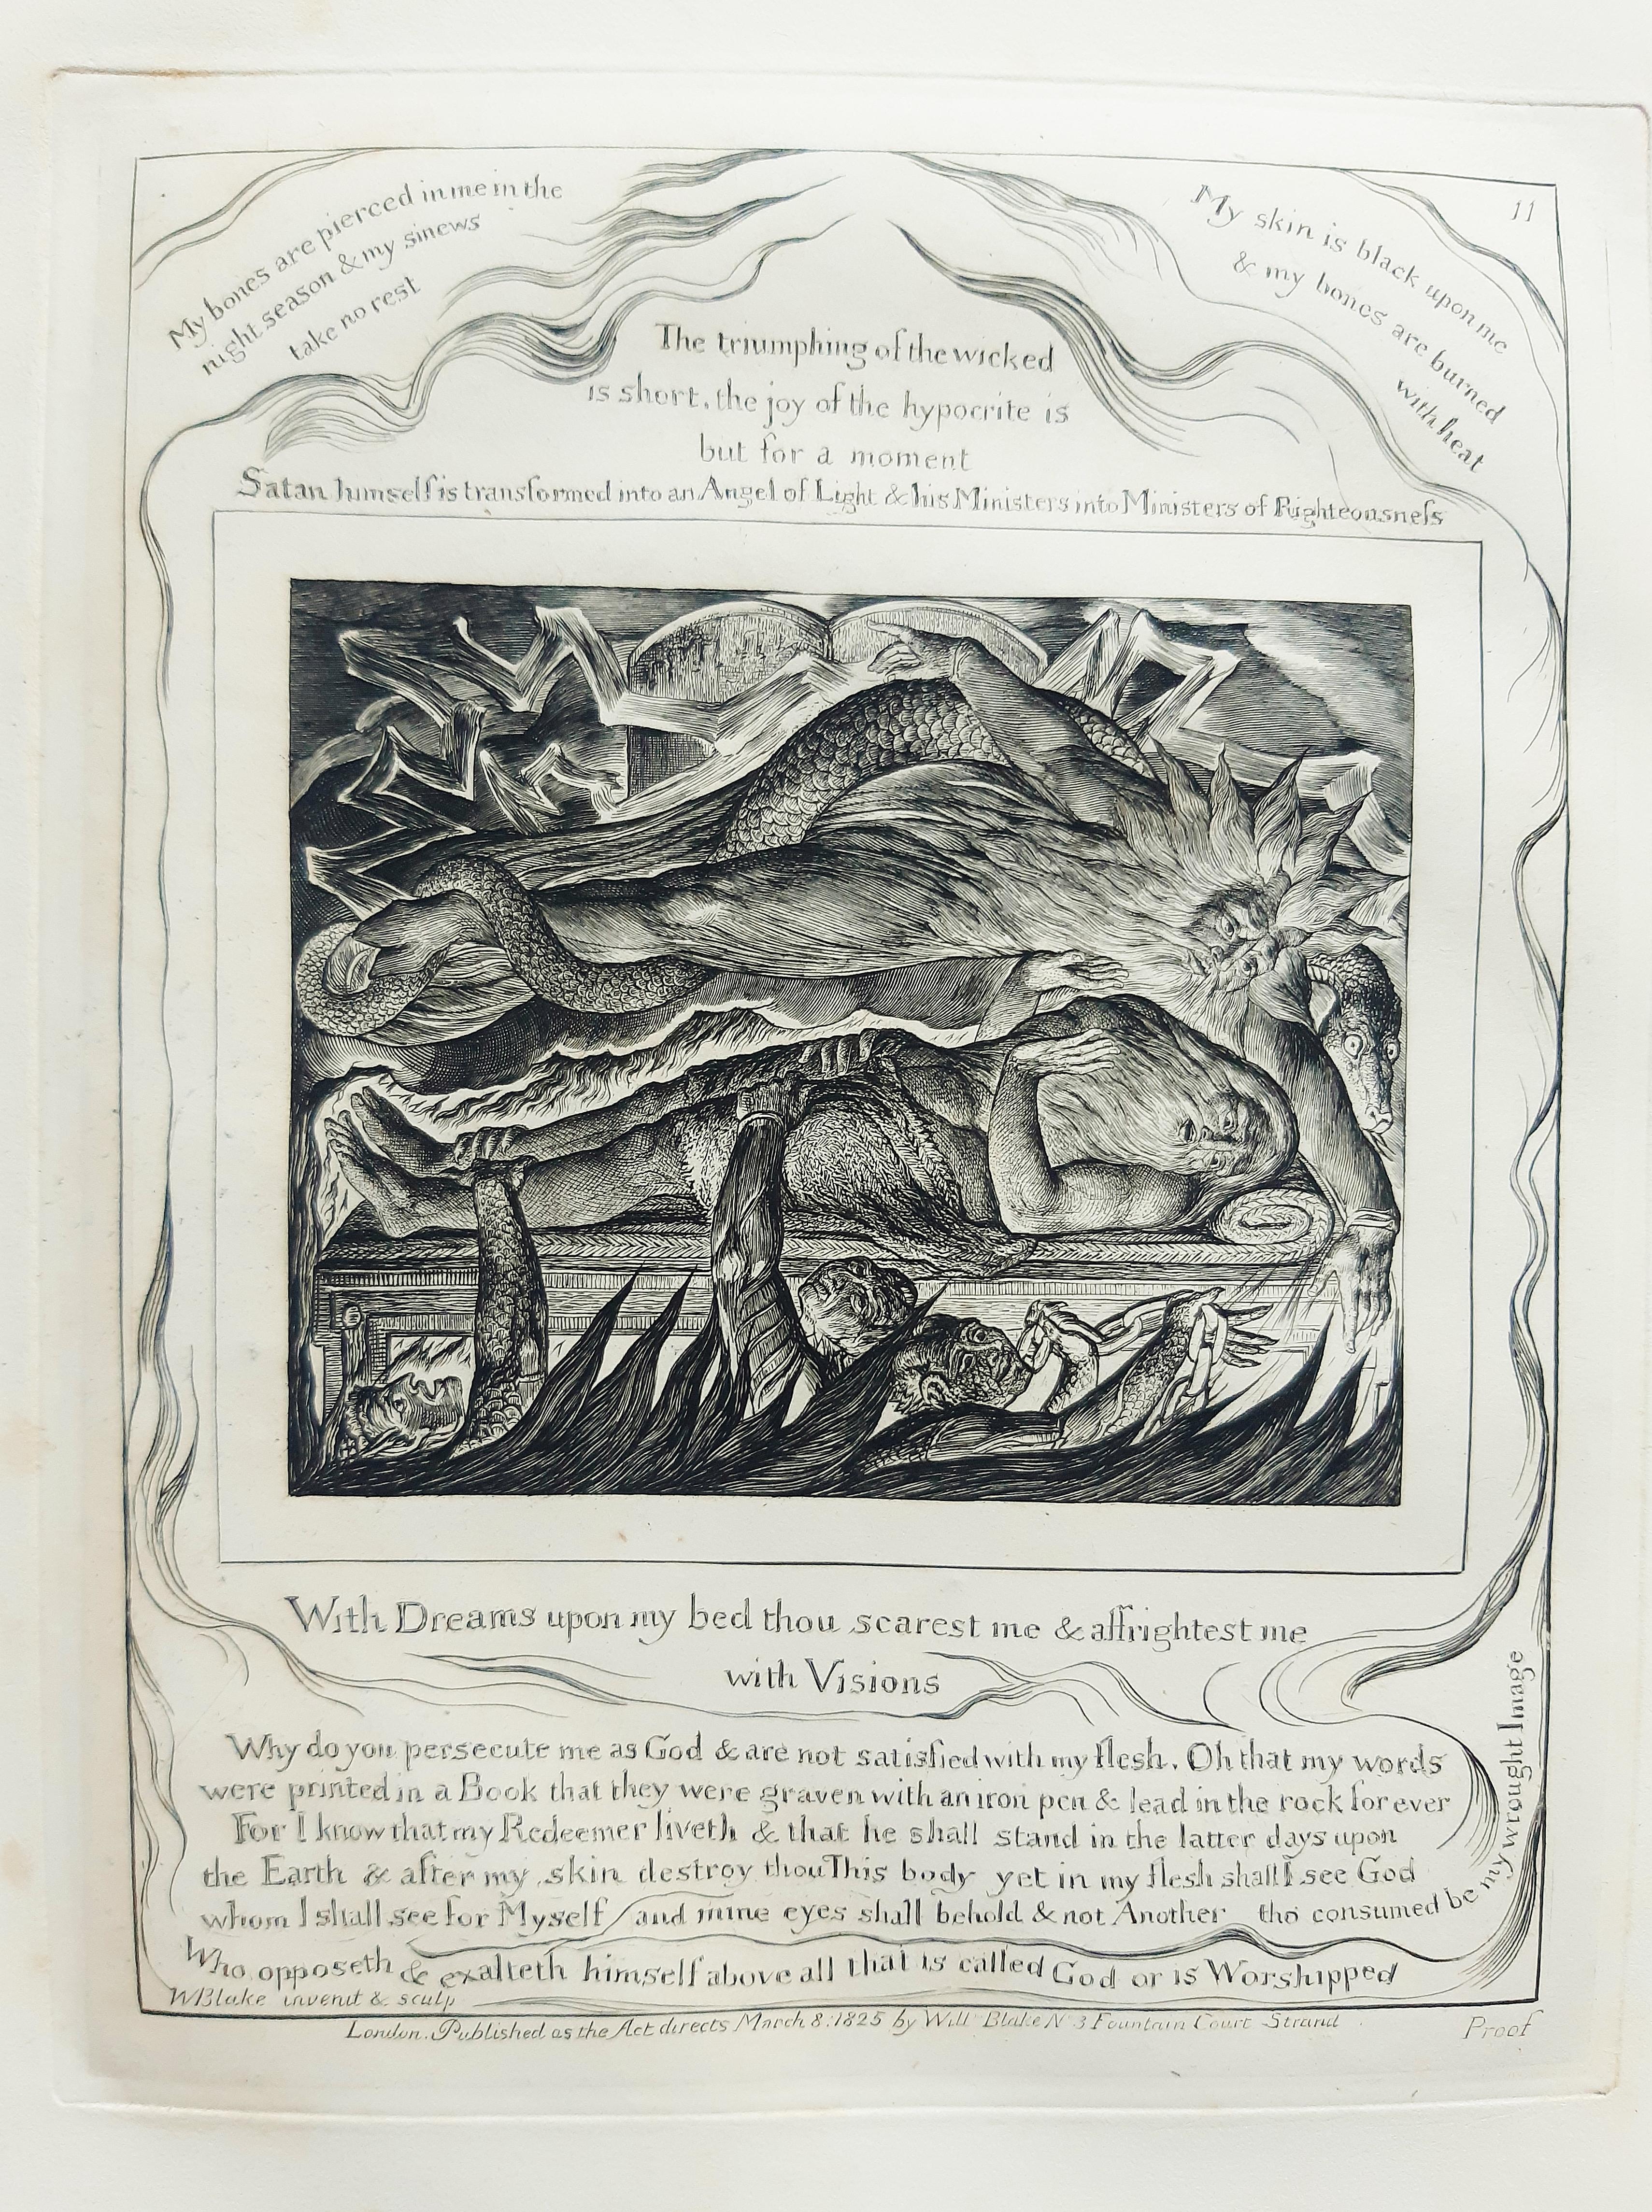 11
My bones are pierced in me in the
night season & my sinews
take no rest
My skin is black upon me
& my bones are burned
with heat
The triumphing of the wicked
is short, the joy of the hypocrite is
but for a moment
Satan himself is transformed into an Angel of Light & his Ministers into Ministers of Righteousneſs
With Dreams upon my bed thou scarest me & affrightest me
with Visions
Why do you persecute me as God & are not satisfied with my flesh. Oh that my words
were printed in a Book that they were graven with an iron pen & lead in the rock for ever
For I know that my Redeemer liveth & that he shall stand in the latter days upon
the Earth & after my skin destroy thou This body yet in my flesh shall I see God
whom I shall see for Myself and mine eyes shall behold & not Another tho consumed be my wrought Image
Who opposeth & exalteth himself above all that is called God or is Worshipped
WBlake invenit & sculp
London. Published as the Act directs March 8: 1825 by Will Blake N 3 Fountain Court Strand
Proof